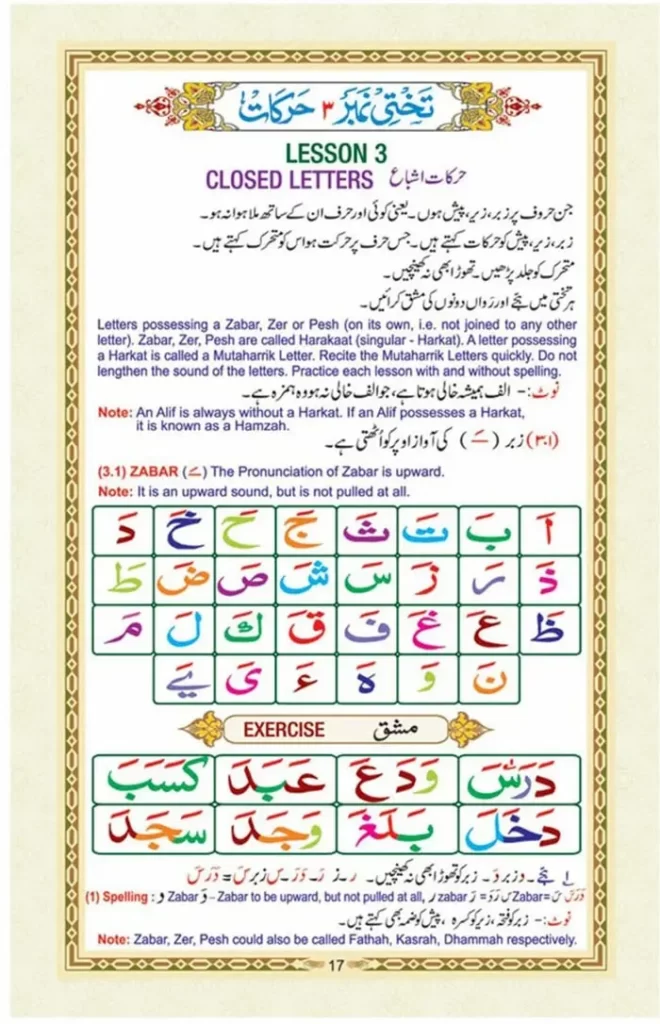 تختی نمبر ۳ حرکات
LESSON 3
CLOSED LETTERS حرکات اشباع
جن حروف پر زبر، زیر، پیش ہوں۔ یعنی کوئی اور حرف ان کے ساتھ ملا ہوا نہ ہو۔
زبر، زیر، پیش کو حرکات کہتے ہیں۔ جس حرف پر حرکت ہو اس کو متحرک کہتے ہیں۔
متحرک کو جلد پڑھیں۔ تھوڑا بھی نہ کھینچیں۔
ہر تختی میں ہجے اور رواں دونوں کی مشق کرائیں۔
Letters possessing a Zabar, Zer or Pesh (on its own, i.e. not joined to any other
letter). Zabar, Zer, Pesh are called Harakaat (singular - Harkat). A letter possessing
a Harkat is called a Mutaharrik Letter. Recite the Mutaharrik Letters quickly. Do not
lengthen the sound of the letters. Practice each lesson with and without spelling.
نوٹ:- الف ہمیشہ خالی ہوتا ہے، جو الف خالی نہ ہو وہ ہمزہ ہے۔
Note: An Alif is always without a Harkat. If an Alif possesses a Harkat,
it is known as a Hamzah.
(۳.۱) زبر (ـَ) کی آواز اوپر کو اُٹھتی ہے۔
(3.1) ZABAR (ـَ) The Pronunciation of Zabar is upward.
Note: It is an upward sound, but is not pulled at all.
اَ بَ تَ ثَ جَ حَ خَ دَ
ذَ رَ زَ سَ شَ صَ ضَ طَ
ظَ عَ غَ فَ قَ كَ لَ مَ
نَ وَ هَ ءَ یَ یَے
EXERCISE مشق
دَرَسَ وَدَعَ عَبَدَ كَسَبَ
دَخَلَ بَلَغَ وَجَدَ سَجَدَ
لے ہجے۔ د زبر دَ۔ زبر کو تھوڑا بھی نہ کھینچیں۔ ر۔ ز رَ۔ دَرَ۔ س زبر سَ= دَرَسَ
(1) Spelling : و Zabar وَ – Zabar to be upward, but not pulled at all, ر zabar رَ = دَرَ س Zabar= سَ دَرَسَ
نوٹ:- زبر کو فتحہ، زیر کو کسرہ، پیش کو ضمہ بھی کہتے ہیں۔
Note: Zabar, Zer, Pesh could also be called Fathah, Kasrah, Dhammah respectively.
17